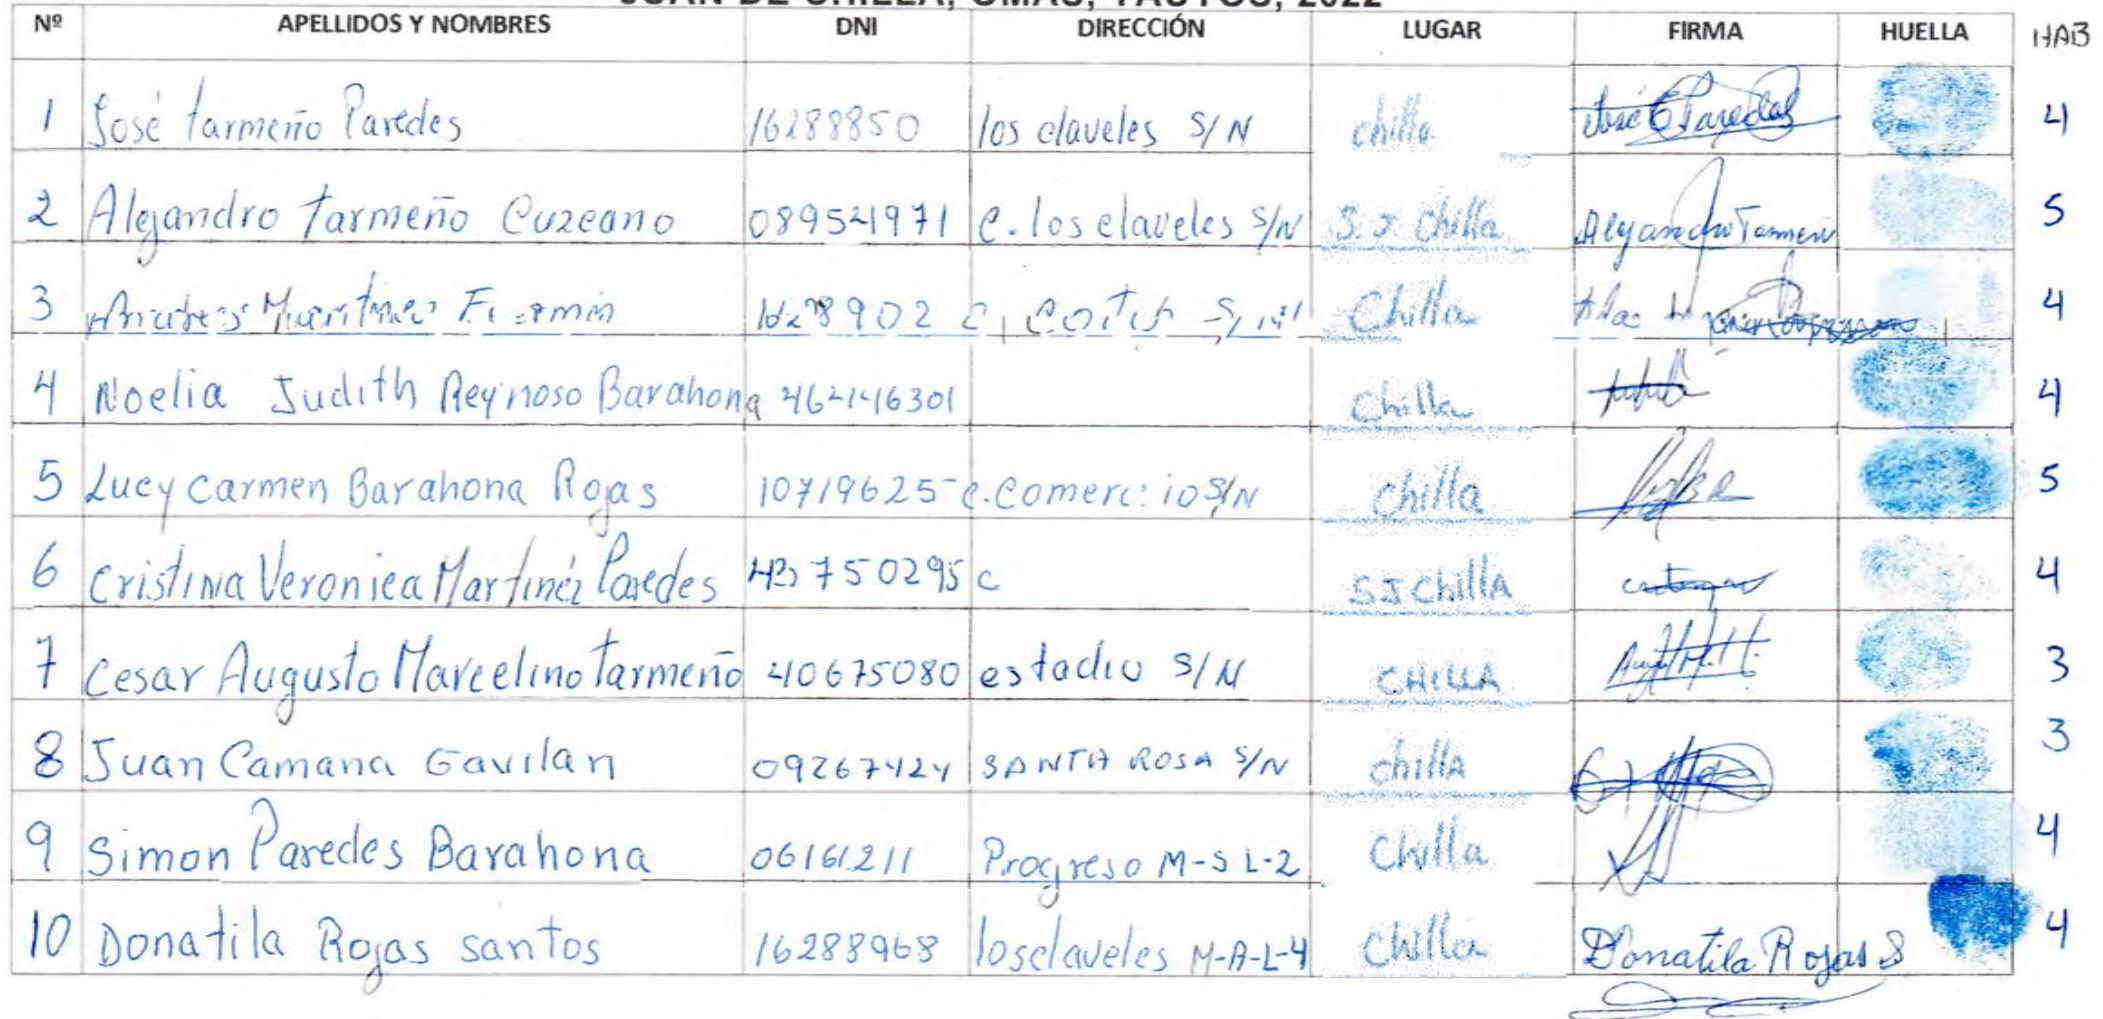 JUAN DE CHILLA, OMAS, YAUYOS, 2022
Nº APELLIDOS Y NOMBRES DNI DIRECCIÓN LUGAR FIRMA HUELLA HAB
1 José Tarmeño Paredes 16288850 los claveles S/N chilla José Paredes 4
2 Alejandro Tarmeño Cuzcano C. los claveles S/N S.J. Chilla Alejandro Tarmeñ 5
3 Chilla 4
4 Noelia Judith Reynoso Barahona Chilla 4
5 Lucy Carmen Barahona Rojas 10719625 C. Comercio S/N Chilla 5
6 Cristina Veronica Martinéz Paredes C S J Chilla 4
7 Cesar Augusto Marcelino Tarmeño 40675080 estadio S/N CHILLA 3
8 Juan Camana Gavilan 09267424 SANTA ROSA S/N chilla 3
9 Simon Paredes Barahona 06161211 Progreso M-S L-2 Chilla 4
10 Donatila Rojas santos 16288968 los claveles M-A-L-4 Chilla Donatila Rojas S 4